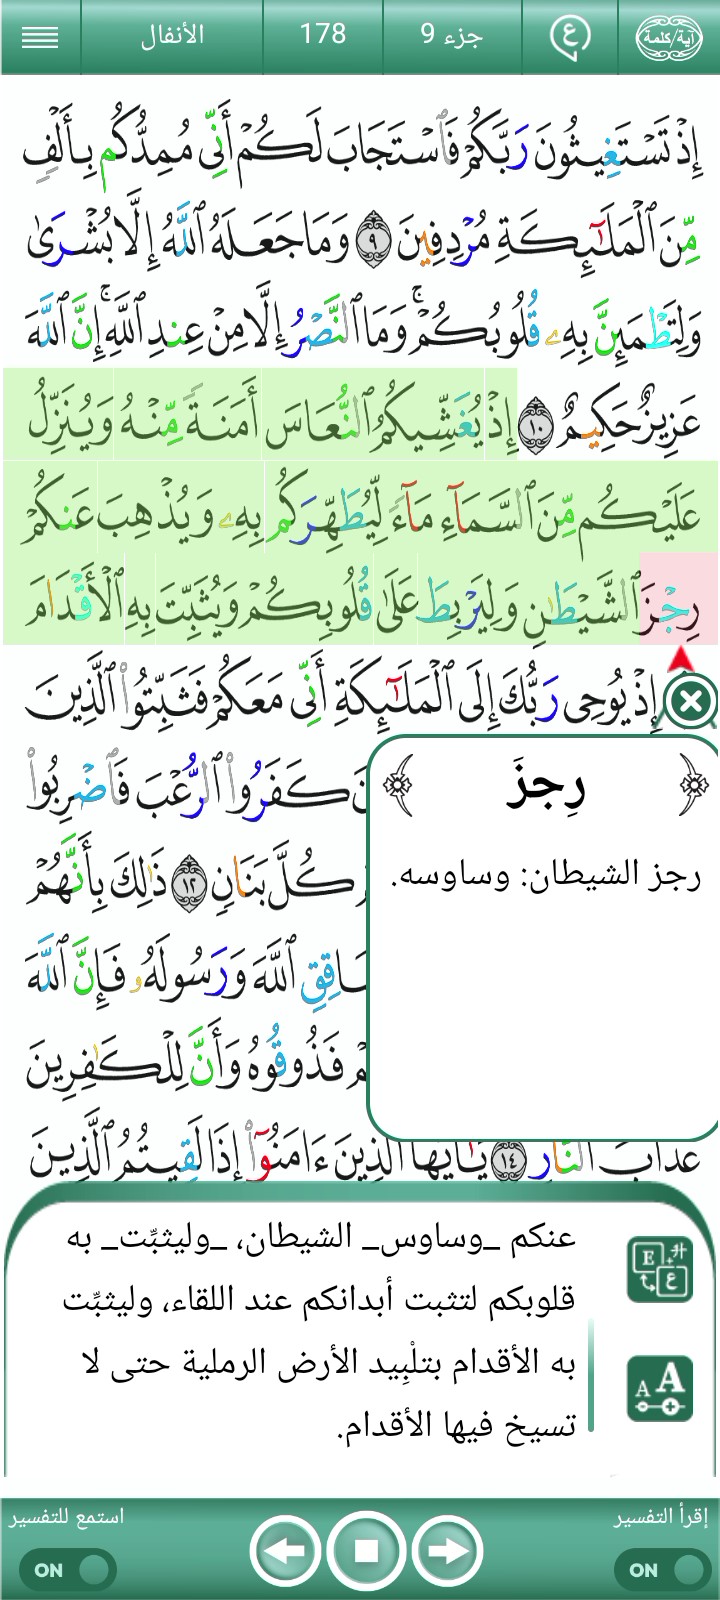 آية/كلمة ع جزء 9 178 الأنفال
إِذْ تَسْتَغِيثُونَ رَبَّكُمْ فَٱسْتَجَابَ لَكُمْ أَنِّى مُمِدُّكُم بِأَلْفٍ
مِّنَ ٱلْمَلَـٰٓئِكَةِ مُرْدِفِينَ ٩ وَمَا جَعَلَهُ ٱللَّهُ إِلَّا بُشْرَىٰ
وَلِتَطْمَئِنَّ بِهِۦ قُلُوبُكُمْ ۚ وَمَا ٱلنَّصْرُ إِلَّا مِنْ عِندِ ٱللَّهِ ۚ إِنَّ ٱللَّهَ
عَزِيزٌ حَكِيمٌ ١٠ إِذْ يُغَشِّيكُمُ ٱلنُّعَاسَ أَمَنَةً مِّنْهُ وَيُنَزِّلُ
عَلَيْكُم مِّنَ ٱلسَّمَآءِ مَآءً لِّيُطَهِّرَكُم بِهِۦ وَيُذْهِبَ عَنكُمْ
رِجْزَ ٱلشَّيْطَـٰنِ وَلِيَرْبِطَ عَلَىٰ قُلُوبِكُمْ وَيُثَبِّتَ بِهِ ٱلْأَقْدَامَ
إِذْ يُوحِى رَبُّكَ إِلَى ٱلْمَلَـٰٓئِكَةِ أَنِّى مَعَكُمْ فَثَبِّتُوا۟ ٱلَّذِينَ
كَفَرُوا۟ ٱلرُّعْبَ فَٱضْرِبُوا۟
﴿ رِجزَ ﴾
رجز الشيطان: وساوسه.
كُلَّ بَنَانٍ ١٢ ذَٰلِكَ بِأَنَّهُمْ
ٱللَّهَ وَرَسُولَهُۥ فَإِنَّ ٱللَّهَ
فَذُوقُوهُ وَأَنَّ لِلْكَـٰفِرِينَ
عَذَابَ ٱلنَّارِ ١٤ يَـٰٓأَيُّهَا ٱلَّذِينَ ءَامَنُوٓا۟ إِذَا لَقِيتُمُ ٱلَّذِينَ
عنكم _وساوس_ الشيطان، _وليثبِّت_ به
قلوبكم لتثبت أبدانكم عند اللقاء، وليثبِّت
به الأقدام بتلْبِيد الأرض الرملية حتى لا
تسيخ فيها الأقدام.
إقرأ التفسير استمع للتفسير
ON ON